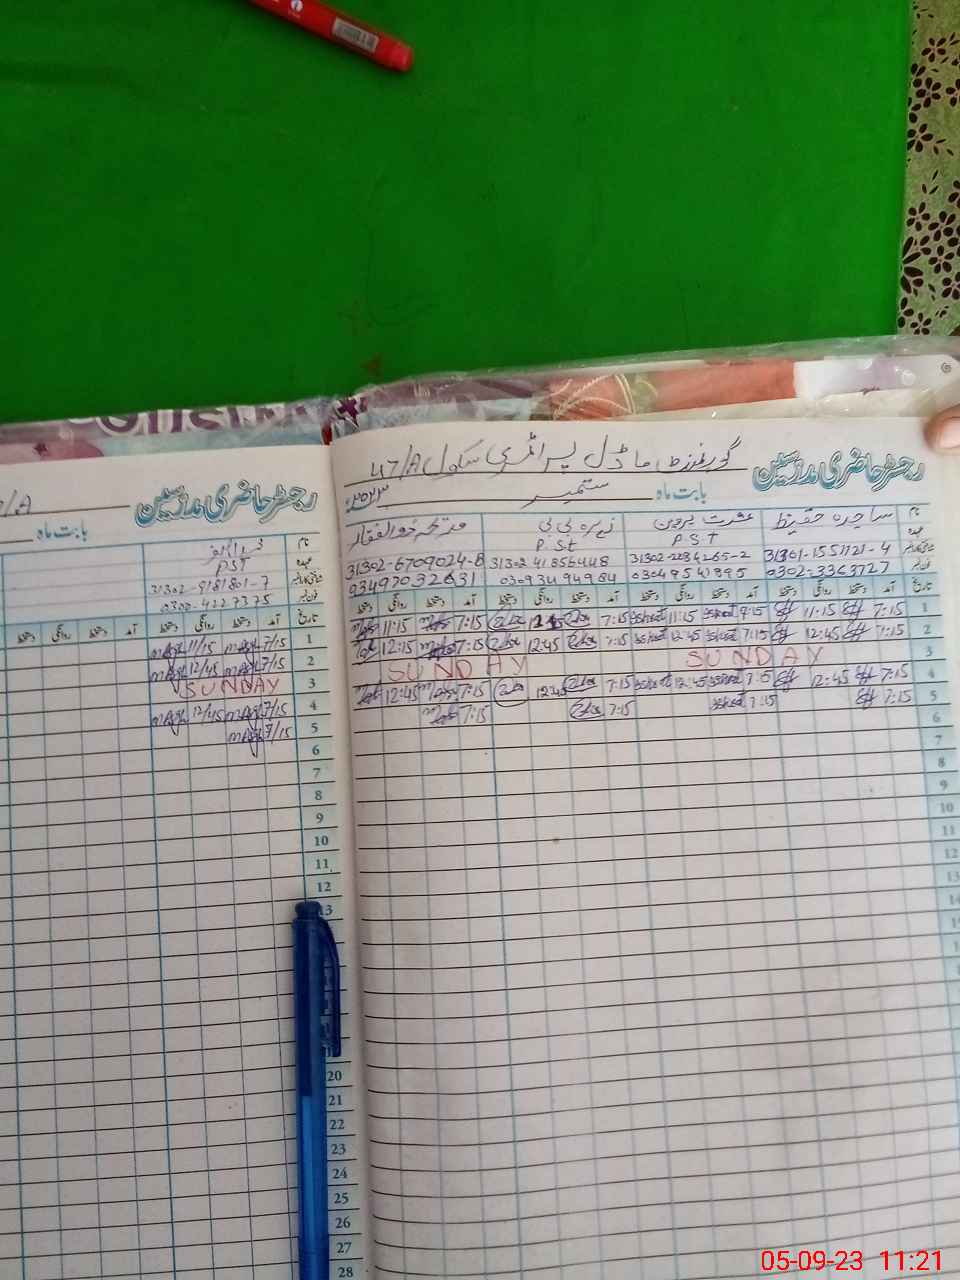 گورنمنٹ ماڈل پرائمری سکول 47/A
رجسٹر حاضری مدرسین
بابت ماہ ستمبر ۲۰۲۳ء
نام ساجدہ حفیظ عشرت پروین زہرہ بی بی مدیحہ ذوالفقار
عہدہ P.S.T P.S.t
شناختی کارڈ نمبر 31301-1551121-4 31302-2234265-2 31302 41856448 31302-6709024-8
فون نمبر 0302-3363727 03497032631
تاریخ آمد دستخط روانگی دستخط آمد دستخط روانگی دستخط آمد دستخط روانگی دستخط آمد دستخط روانگی دستخط
1 7:15 11:15 7:15 11:15 7:15 7:15 11:15
2 7:15 12:45 7:15 12:45 7:15 12:45 7:15 12:15
3 SUNDAY SUNDAY
4 7:15 12:45 7:15 12:45 7:15 12:45 7:15 12:45
5 7:15 7:15 7:15 7:15
6
7
8
9
10
11
12
13
14
15
رجسٹر حاضری مدرسین
/A
بابت ماہ
نام
عہدہ PST
شناختی کارڈ نمبر 31302-9181801-7
فون نمبر 0300-4227375
تاریخ آمد دستخط روانگی دستخط آمد دستخط روانگی
1 7/15 11/15
2 7/15 12/45
3 SUNDAY
4 7/15 12/45
5 7/15
6
7
8
9
10
11
12
13
20
21
22
23
24
25
26
27
28
05-09-23 11:21